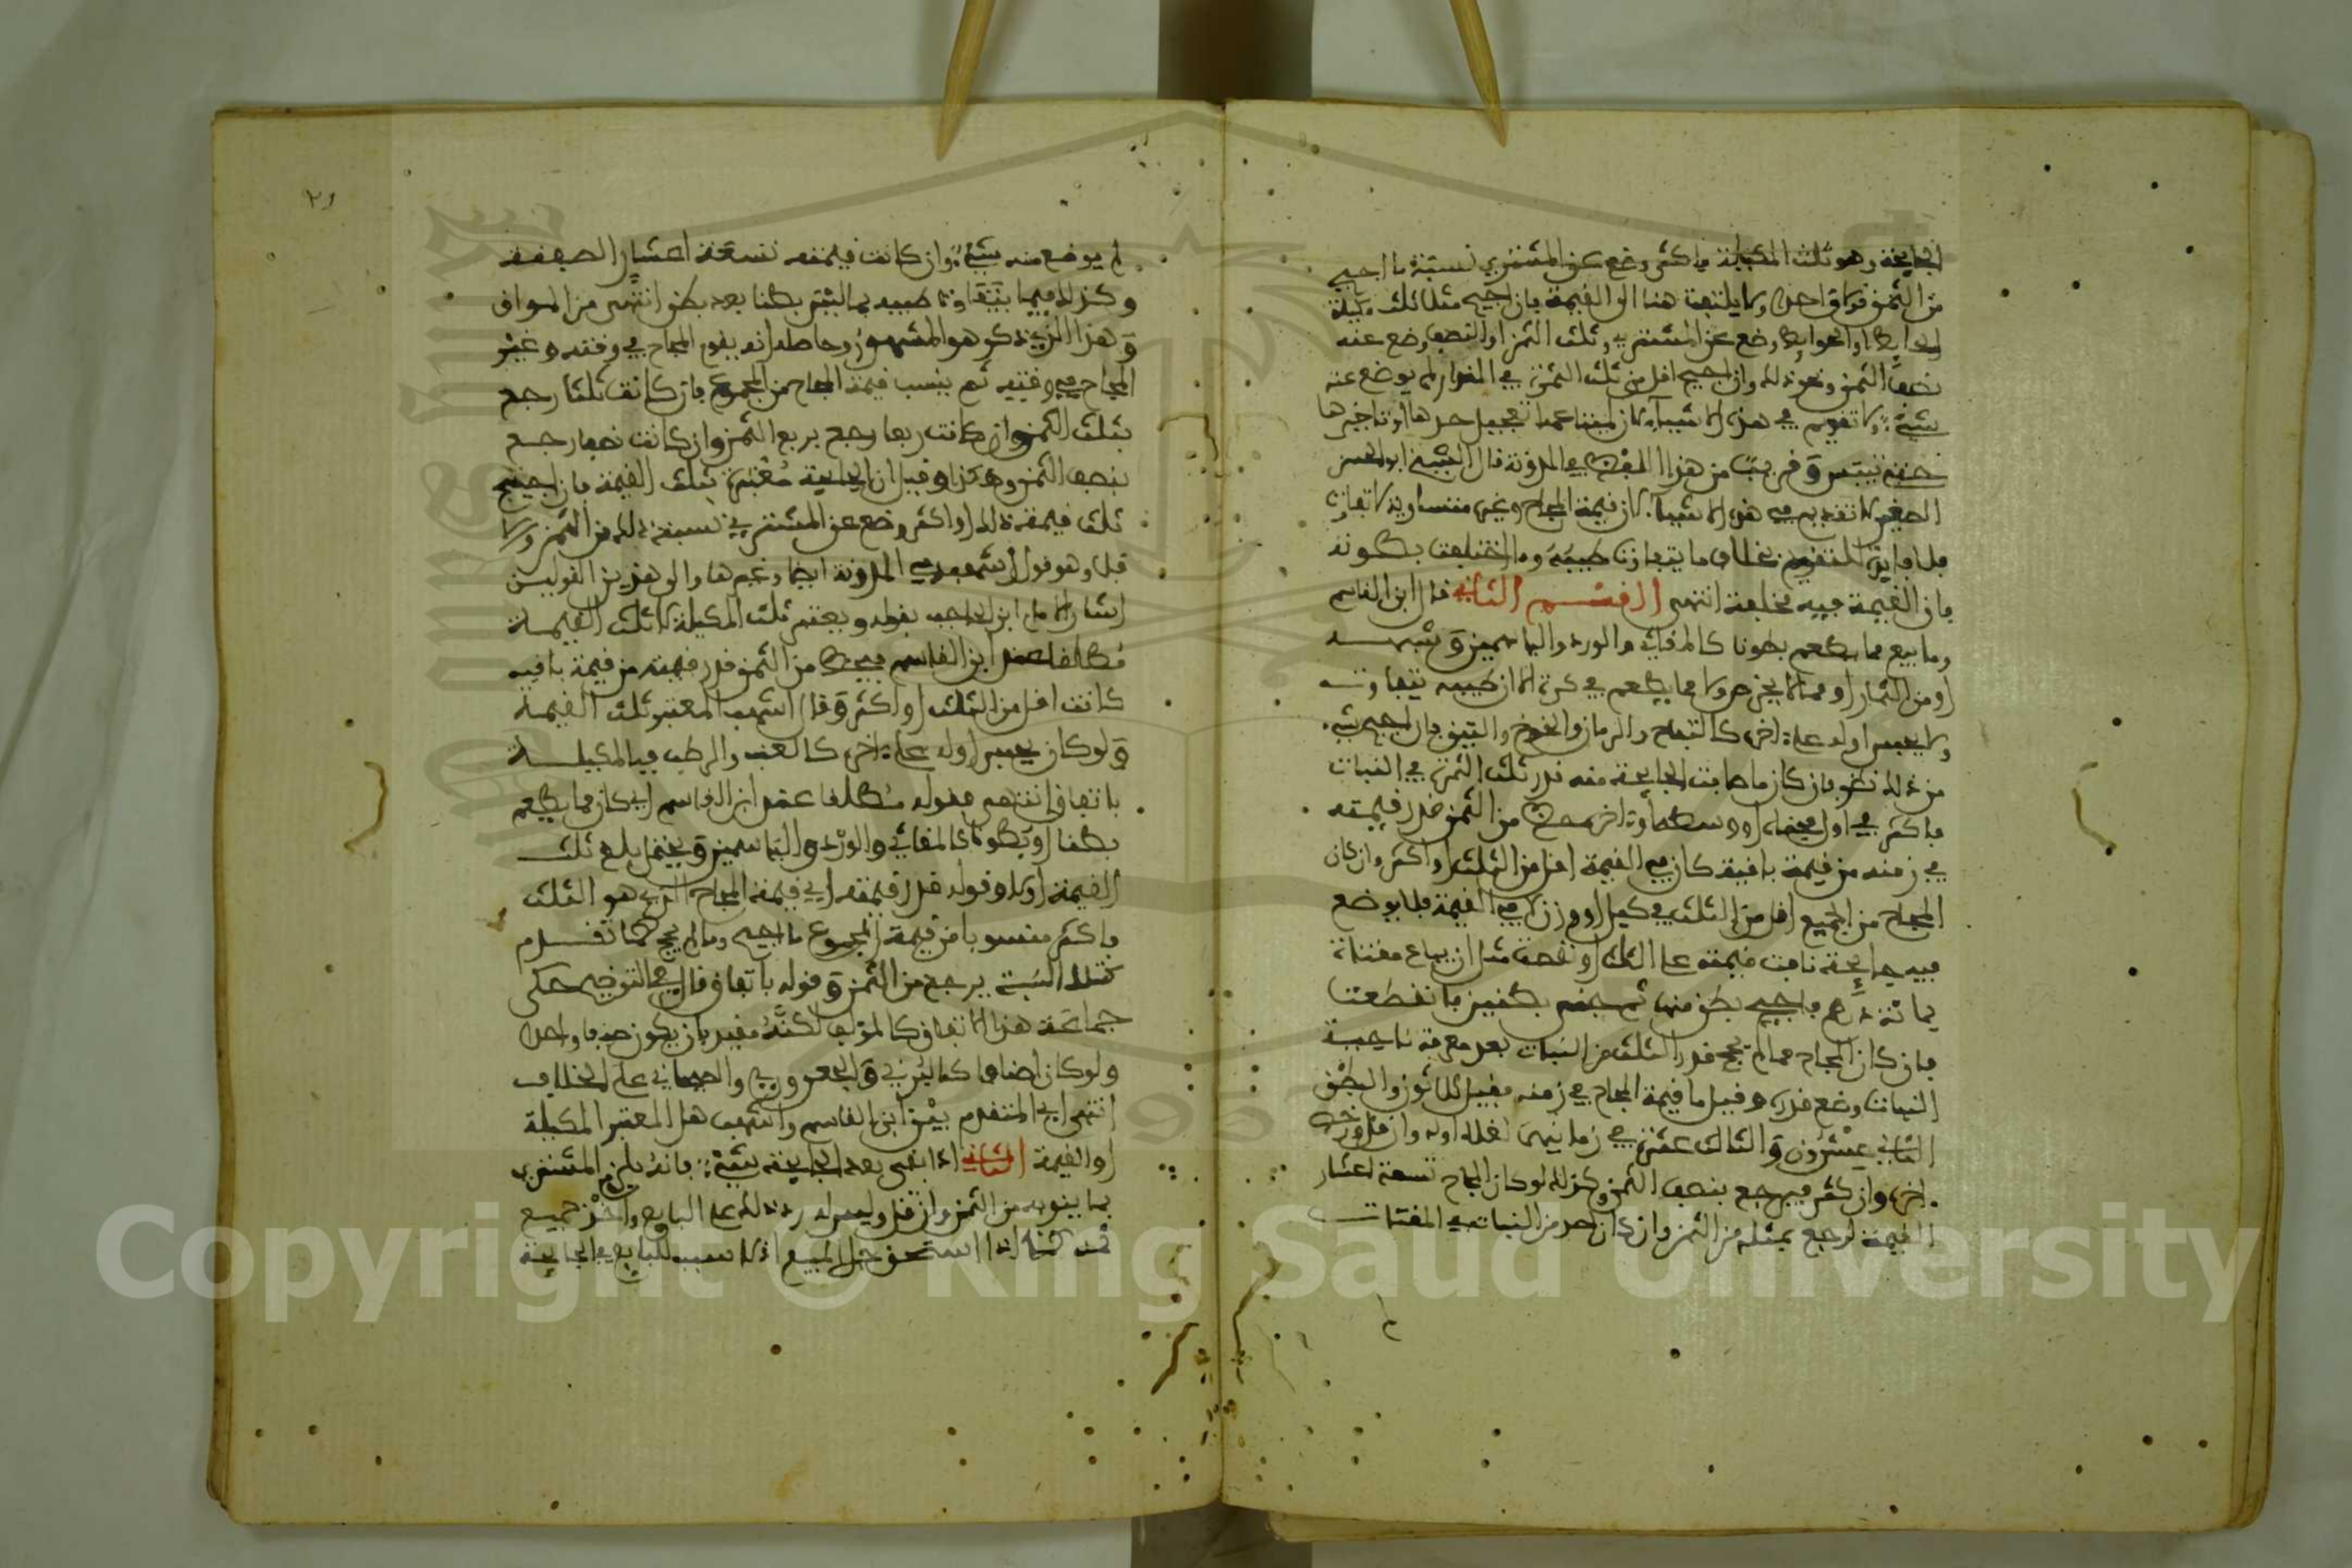 الجايحة وهو ثلث المكيلة فاكثر وضع عن المشتري نسبة ما اجيح
من الثمن قولا واحدا ولا يلتفت هنا الى القيمة فان اجيح مثلا ثلث مكيلة
وضع عن المشتري ثلث الثمن او النصف وضع عنه
نصف الثمن ونحو ذلك وان اجيح اقل من ثلث الثمرة في المقدار لم يوضع عنه
شيء ولا تقويم في هذه الاشياء تعجيل احدها او تاخيرها
من هذا المعنى في المدونة قال الشيخ ابو الحسن
الصغير لا تقويم في هذه الاشياء لان قيمة المجاح وغيره متساوية لا تفاوت
فلا فايدة للتقويم بخلاف ما يتفاوت طيبه وما اختلفت بطونه
فان القيمة فيه مختلفة انتهى القسم الثاني قال ابن القاسم
وما بيع مما يطعم بطونا كالمقاثي والورد والياسمين وشبهه
او من الثمار او مما لا يخرص ولا مما يطعم في كرة الا ان طيبه يتفاوت
ولا يحبس اوله على اخره كالتفاح والرمان والخوخ والتين فان اجيح شيء
من ذلك نظر فان كان ما اصابت الجايحة منه قدر ثلث الثمرة في النبات
فاكثر في اول مجناه او وسطه او اخره حط من الثمن قدر قيمته
في زمنه من قيمة باقيه كان في القيمة اقل من الثلث او اكثر وان كان
المجاح من الجميع اقل من الثلث في كيل او وزن لا في القيمة فلا يوضع
فيه جايحة نافت قيمته على الثلث او نقصت مثل ان يباع مقثاة
بمائة درهم فاجيح بطن منها ثم جنى بطنين فانقطعت
فان كان المجاح مما لم يجح قدر الثلث من النبات بعد معرفة ناحية
النبات وضع قدره وقيل ما قيمة المجاح في زمنه فقيل ثلاثون والبطن
الثاني عشرون والثالث عشرة في زمانيهما لغلاء اوله وان قل ورخص
اخره وان كثر فيرجع بنصف الثمن وكذلك لو كان المجاح تسعة اعشار
القيمة لرجع بمثله من الثمن وان كان احد من النبات في المقثات
٢١
لم يوضع منه شيء وان كانت قيمته تسعة اعشار الصفقة
وكذلك فيما يتفاوت طيبه مما اشترى بطنا بعد بطن انتهى من المواق
وهذا الذي ذكره هو المشهور وحاصله انه يقوم المجاح في وقته وغير
المجاح في وقته ثم ينسب قيمة المجاح من المجموع فان كانت ثلثا رجع
بثلث الثمن وان كانت ربعا رجع بربع الثمن وان كانت نصفا رجع
بنصف الثمن وهكذا وقيل ان الجايحة معتبرة بثلث القيمة فان اجيح
ثلث قيمة ذلك او اكثر وضع عن المشتري نسبة ذلك من الثمن ولا
قبل وهو قول اشهب في المدونة ايضا وغيرها والى هذين القولين
اشار الامام ابن الحاجب بقوله ويعتبر ثلث المكيلة لا ثلث القيمة
مطلقا عند ابن القاسم فيحط من الثمن قدر قيمته من قيمة باقيه
كانت اقل من الثلث او اكثر وقال اشهب المعتبر ثلث القيمة
ولو كان يحبس اوله على اخره كالعنب والرطب فالمكيلة
باتفاق انتهى فقوله مطلقا عند ابن القاسم اي كان مما يطعم
بطنا او بطونا كالمقاثي والورد والياسمين وبخنه ابلغ ثلث
القيمة او لا وقوله قدر قيمته اي قيمة المجاح الذي هو الثلث
فاكثر منسوبا من قيمة المجموع ما اجيح وما لم يجح كما تقدم
فبتلك النسبة يرجع من الثمن وقوله باتفاق قال في التوضيح حكى
جماعة هذا الاتفاق كالمؤلف لكنه مقيد بان يكون صنفا واحدا
ولو كان اصنافا كالبرني والجعرور والصيحاني على الخلاف
انتهى اي المتقدم بين ابن القاسم واشهب هل المعتبر المكيلة
او القيمة الثاني اذا بقى بعد الجايحة شيء فانه يلزم المشتري
بما ينوبه من الثمن وان قل وليس له رد ذلك على البايع واخذ جميع
ثمنه كما اذا استحق جل المبيع اذ لا سبب للبايع في الجايحة
Copyright © King Saud University